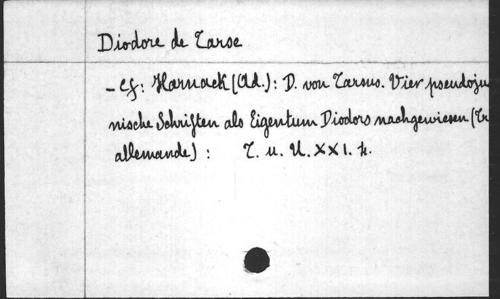 Diodore de Tarse
- Cf: Harnack (Ad.): D. von Tarsus. Vier pseudoju
nische Schriften als Eigentum Diodors nachgewiesen (Tr
allemande) : T. u. U. XXI. 4.